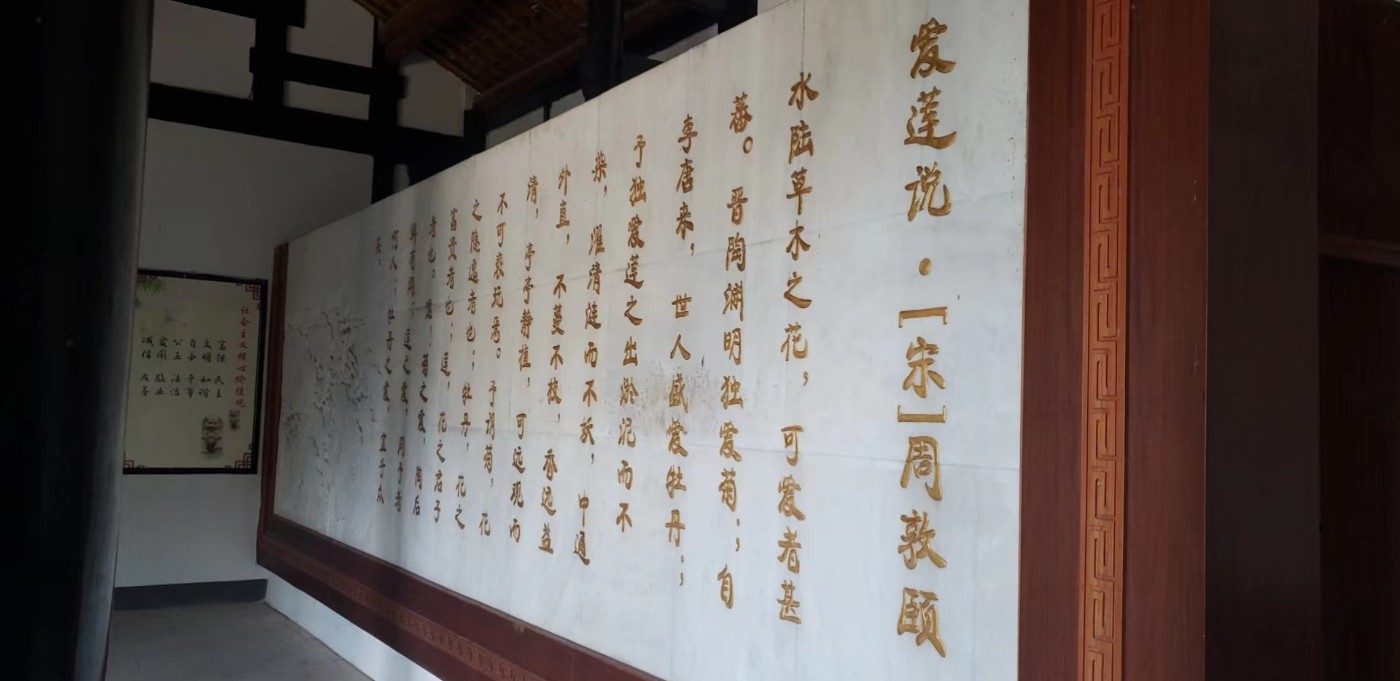 爱莲说·[宋]周敦颐
水陆草木之花，可爱者甚
蕃。晋陶渊明独爱菊；自
李唐来，世人盛爱牡丹；
予独爱莲之出淤泥而不
染，濯清涟而不妖，中通
外直，不蔓不枝，香远益
清，亭亭静植，可远观而
不可亵玩焉。予谓菊，花
之隐逸者也；牡丹，花之
富贵者也；莲，花之君子
者也。噫，菊之爱，陶后
鲜有闻；莲之爱，同予者
何人；牡丹之爱 宜乎众
矣。
社会主义核心价值观
富强 民主
文明 和谐
自由 平等
公正 法治
爱国 敬业
诚信 友善